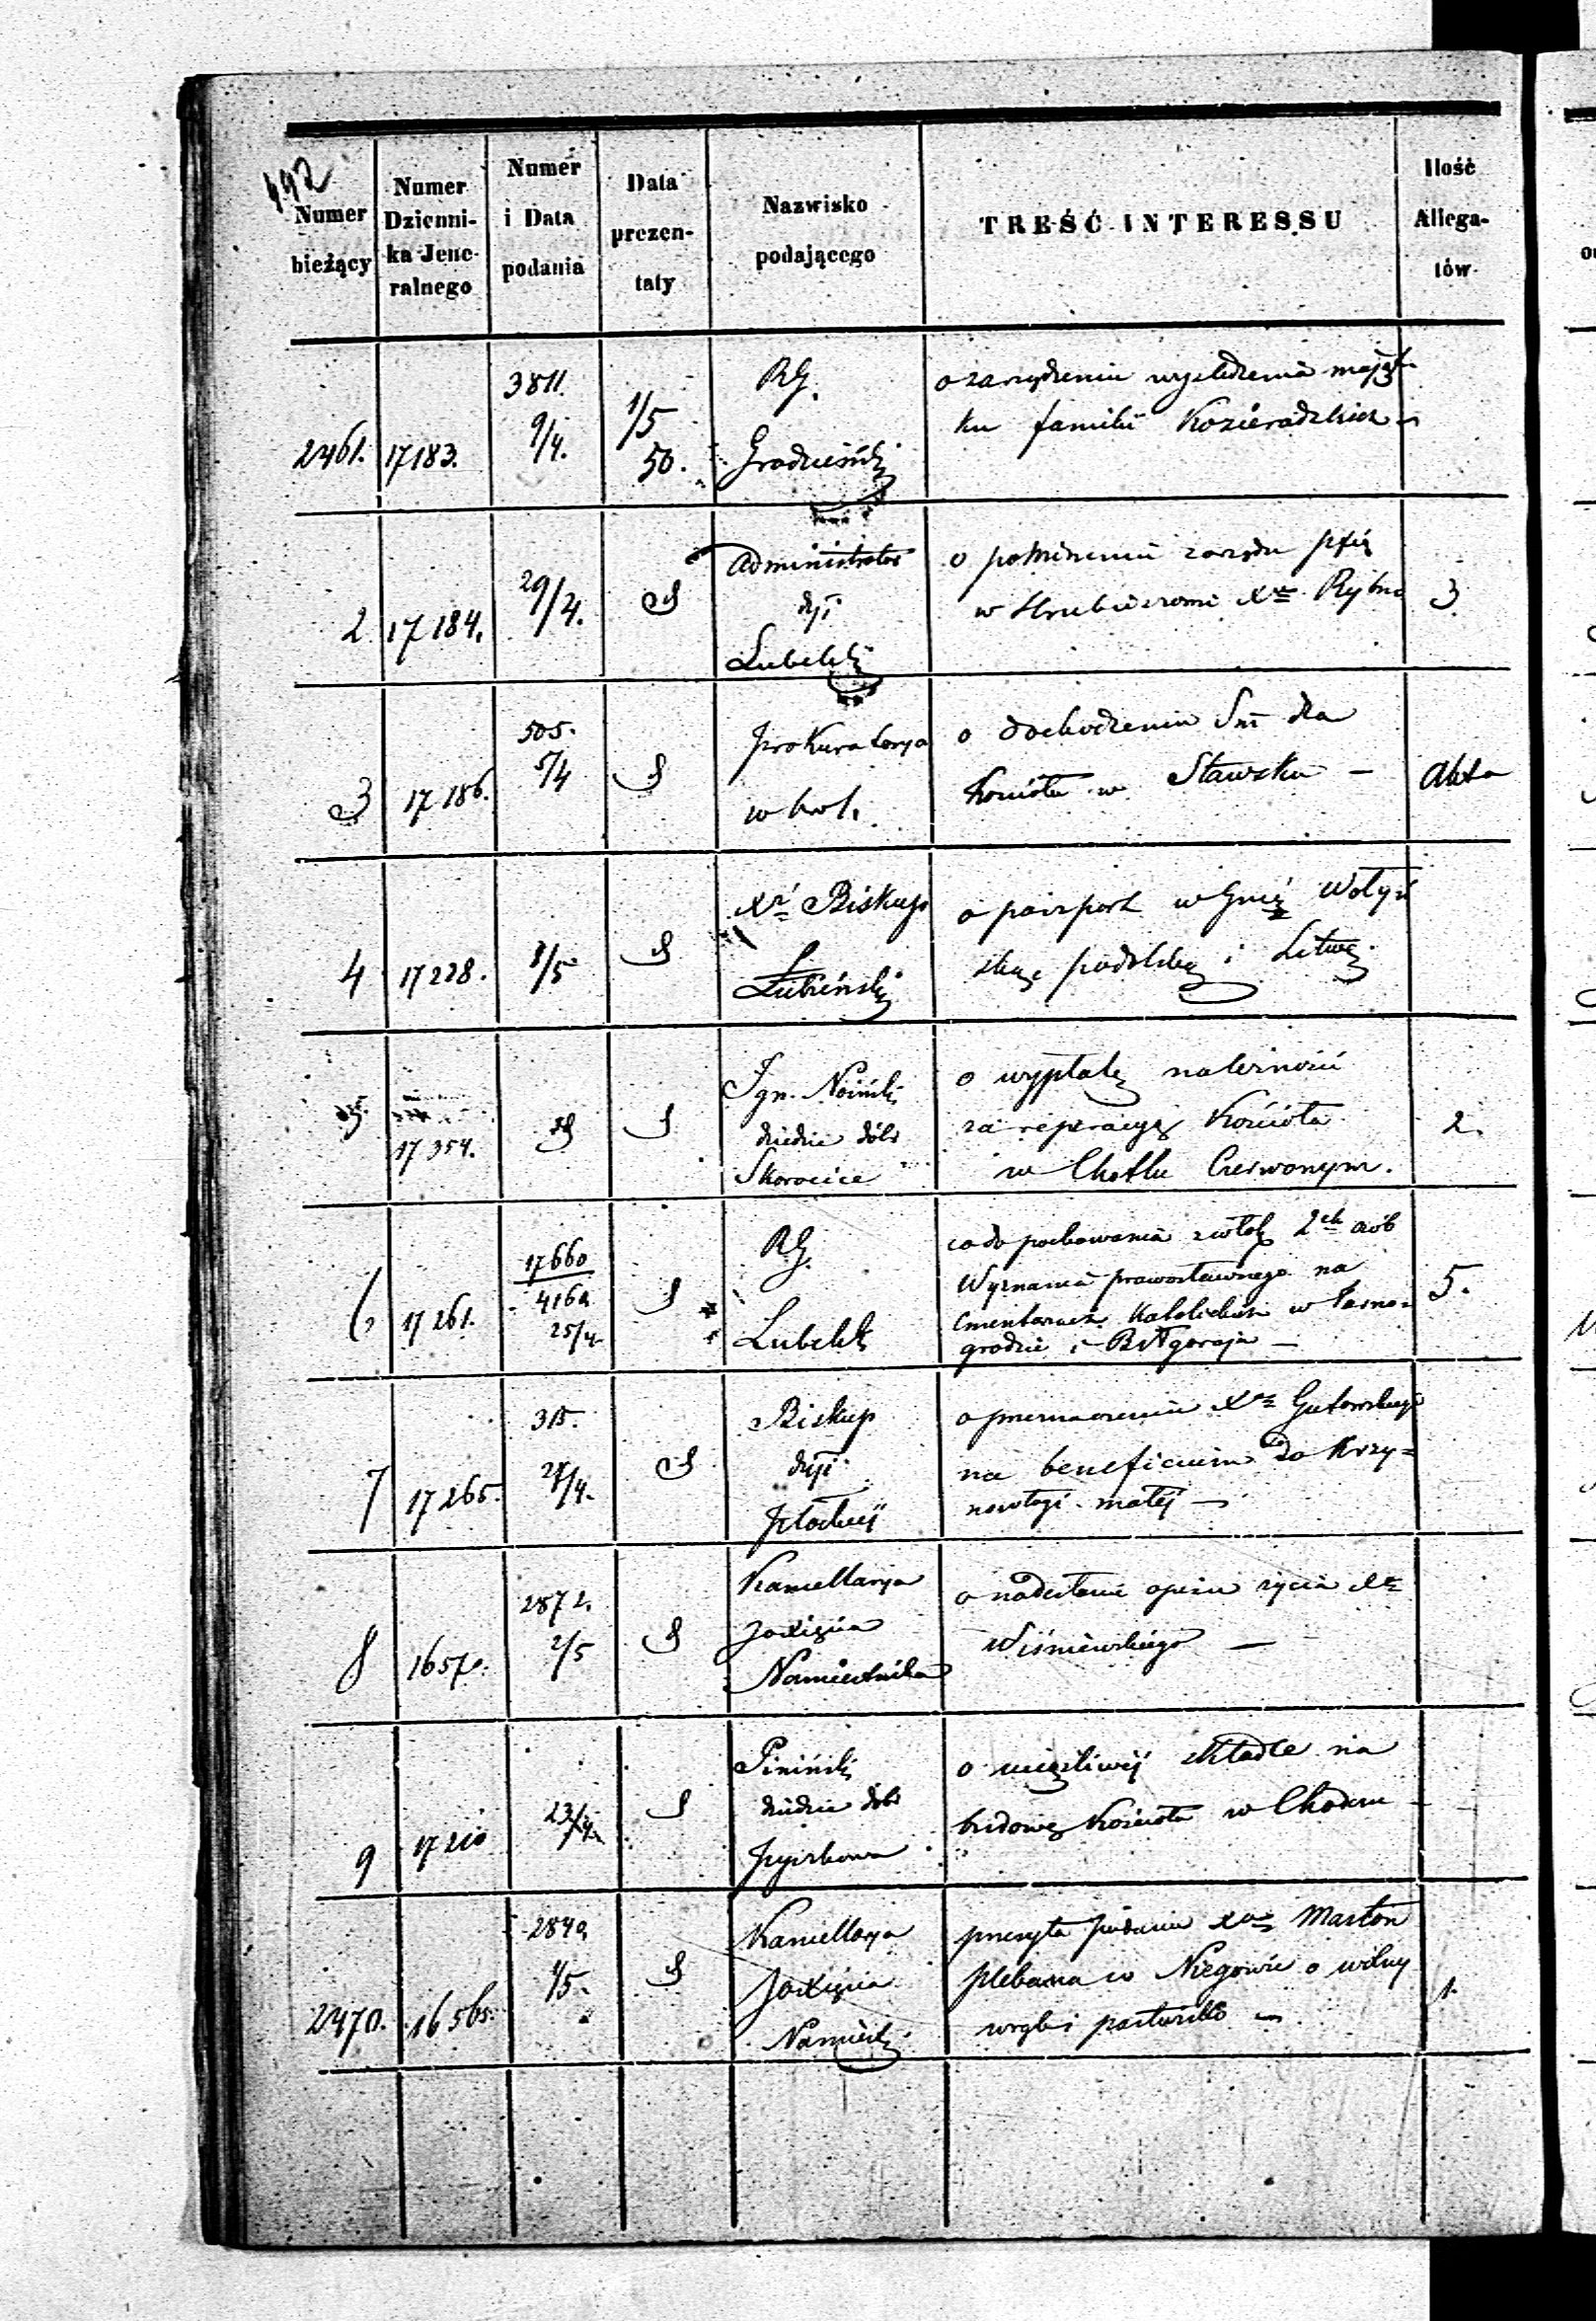 192
Numer bieżący
Numer Dzienni-ka Jene-ralnego
Numer i Data podania
Data prezen-taty
Nazwisko podającego
TREŚĆ INTERESSU
Ilość Allega-tów
2461. 17183. 3811. 9/4. 1/5 50. RG.
o zarządzeniu wyśledzenia mająt-
ku familii Kozieradzkich
2 17184. 29/4. Administrator dyi Lubelski
o zarządu
w Hrubieszowie Xa 3
3 17186. 505. 5/4 Prokuratorya w Król.
o dochodzeniu Sm dla
Kościoła w Stawsku — Akta
4 17228. 1/5 Xdz Biskup Łubieński
o paszport w Gnię Wołyń
ską podolską i Litwę
5 17354. Ign. dziedzic dóbr Skorocice
o wypłatę należności
za reperacyą Kościoła
w Chotlu Czerwonym. 2.
6 17261. 17660 25/4 RG. Lubelski
co do pochowania zwłok 2ch osób
Wyznania prawosławnego na
Cmentarzach Katolickich w Tarno=
grodzie i Biłgoraju — 5.
7 17265. 315. Biskup dyi Płockiej
o przeznaczeniu Xa Gutowskiego
na beneficium do Krzy=
nowłogi małej —
8 1657. 2872. 2/5 Kancellarya Jo Xięcia Namiestnika
o nadesłanie opisu życia Xa
Wiśniewskiego —
9 17210 23/4 Piniński dziedzic dóbr
o uciążliwej składce na
budowę Kościoła w Chodczu
2470. 16565. 1/5. Kancellarya Jo Xięcia Namiest.
przesyła podanie Xa
plebana w Niegowie o wolny
wrąb i pastwisko 1.